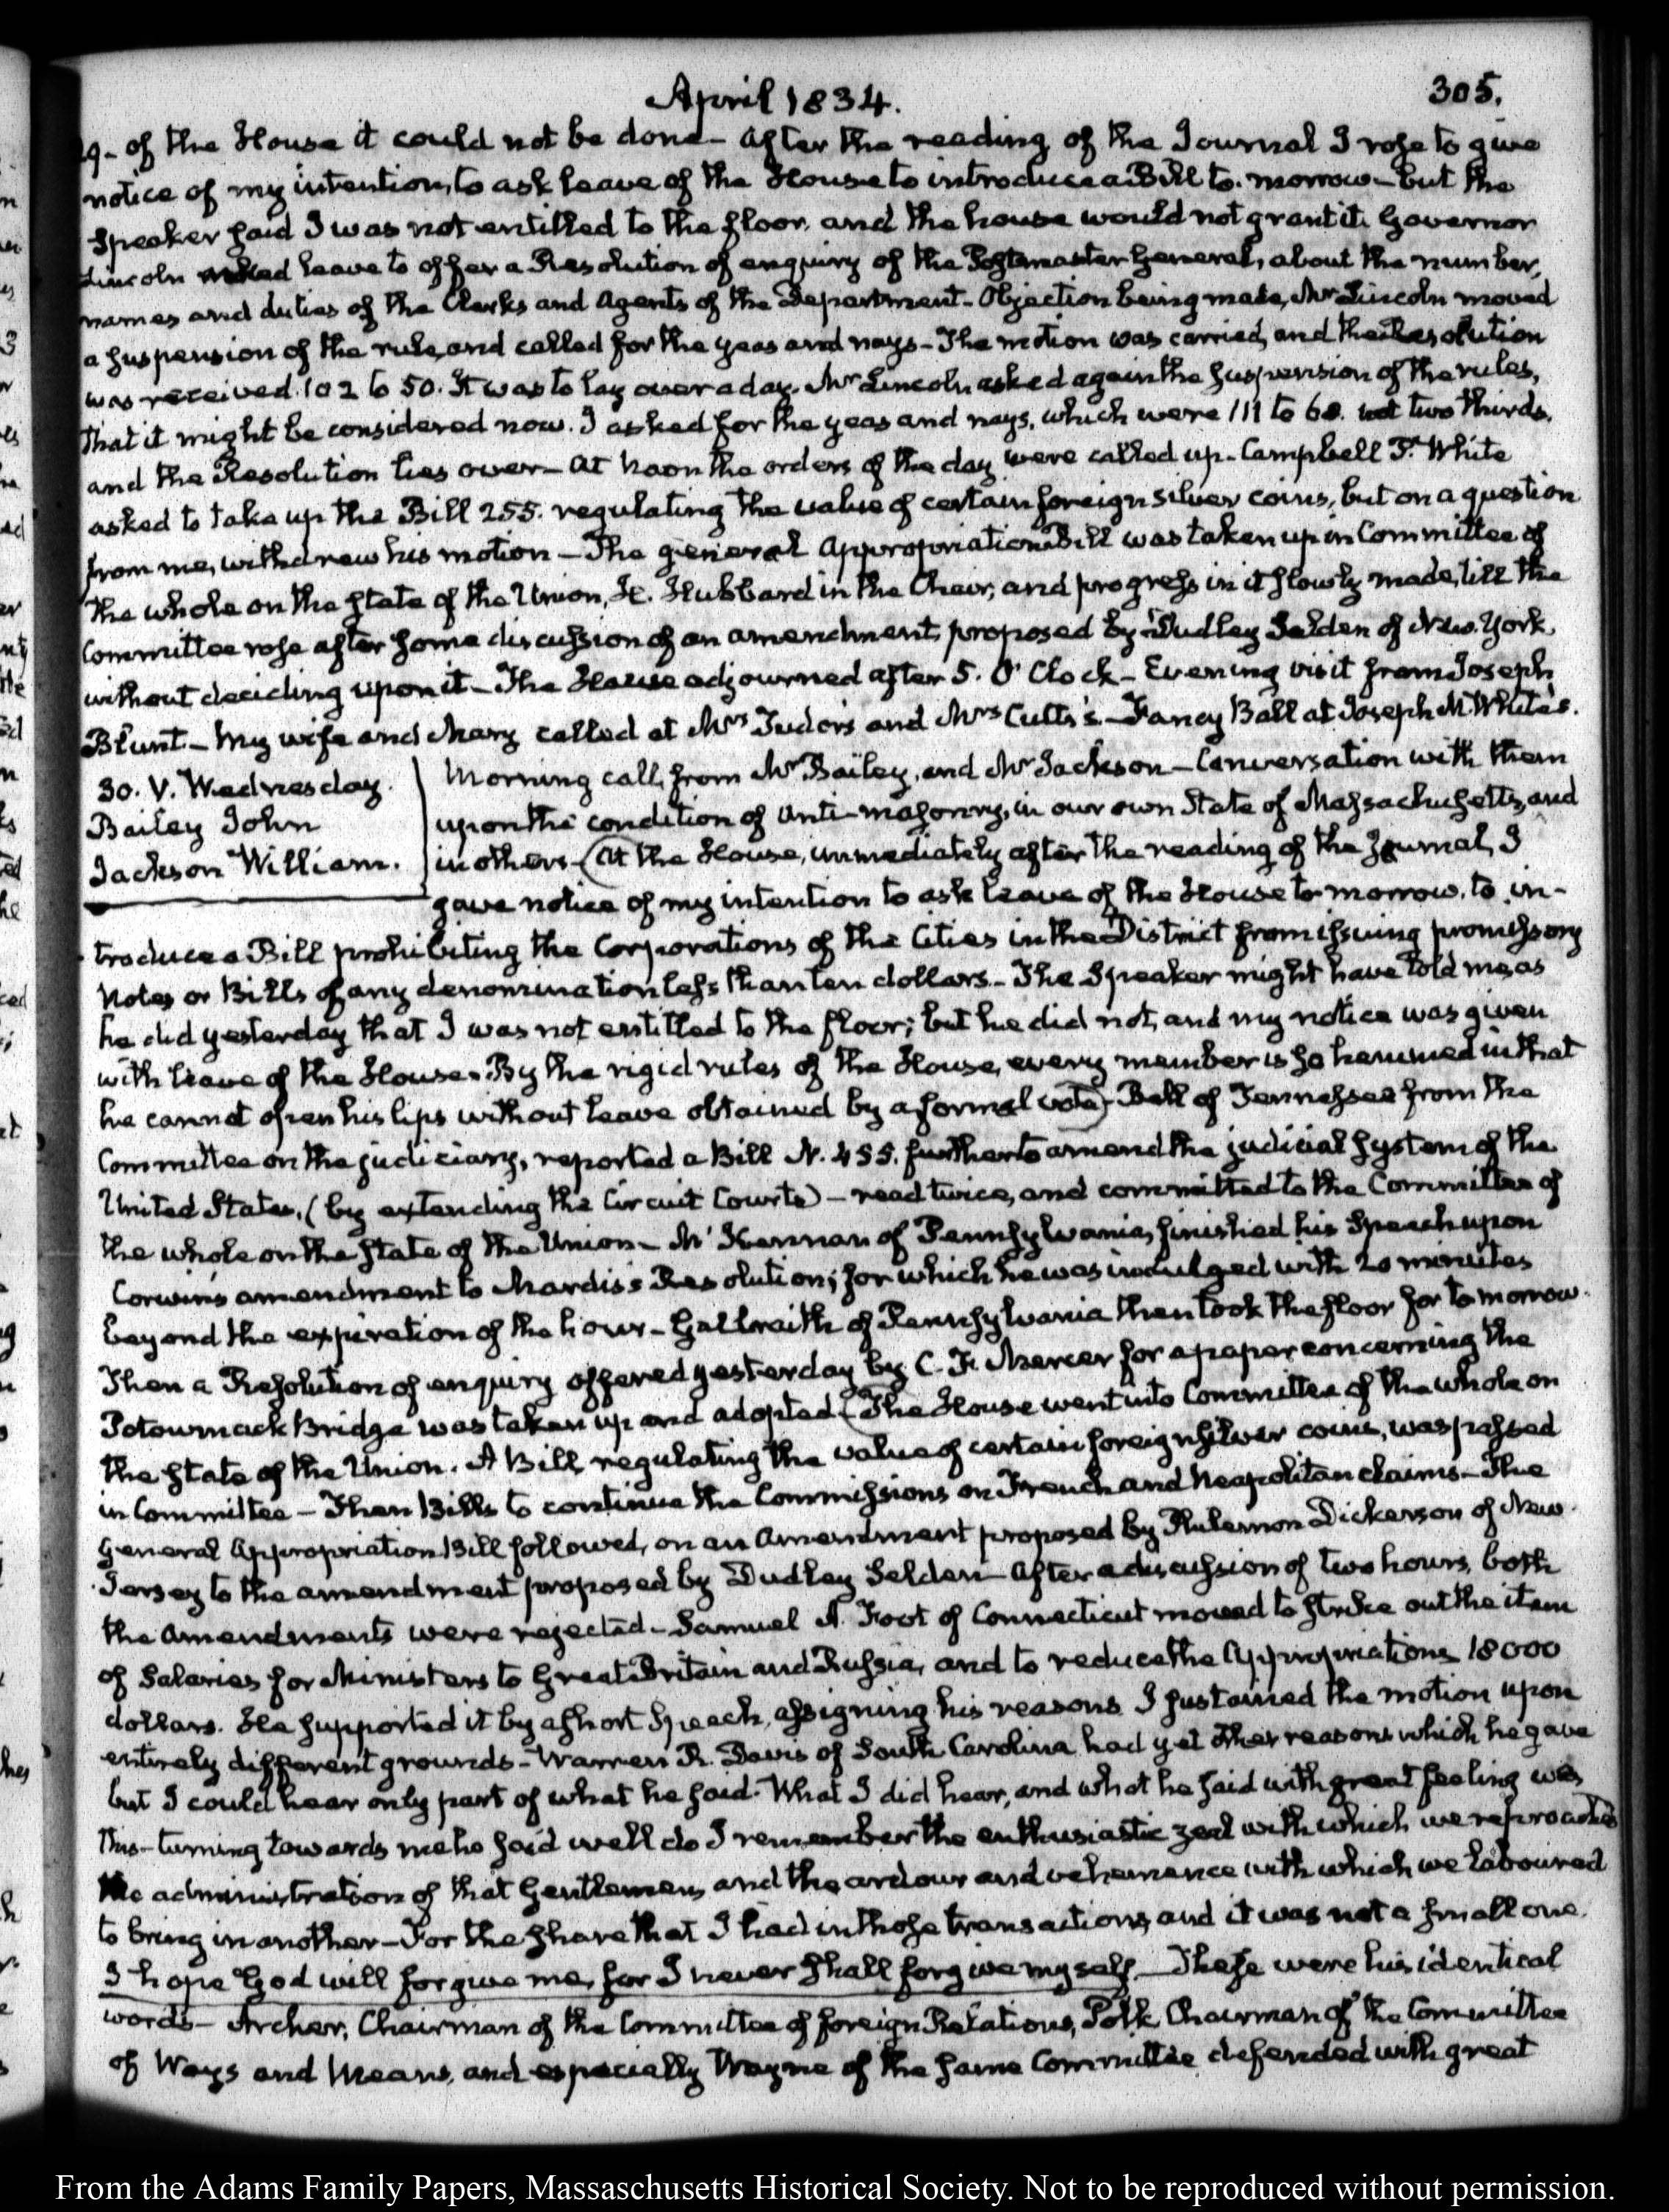 April 1834. 305.
29- of the House it could not be done- After the reading of the Journal I rose to give
notice of my intention, to ask leave of the House to introduce a Bill to-morrow- but the
Speaker said I was not entitled to the floor, and the house would not grant it. Governor
Lincoln asked leave to offer a Resolution of enquiry of the Postmaster General, about the number,
names and duties of the Clerks and Agents of the Department- Objection being made, Mr Lincoln moved
a suspension of the rule, and called for the yeas and nays- The motion was carried, and the Resolution
was received. 102 to 50. It was to lay over a day. Mr Lincoln asked again the suspension of the rules,
that it might be considered now. I asked for the yeas and nays, which were 111 to 60. not two thirds.
and the Resolution lies over- At Noon the orders of the day were called up- Campbell P. White
asked to take up the Bill 255. regulating the value of certain foreign silver coins, but on a question
from me, withdrew his motion- The general Appropriation Bill was taken up in Committee of
the whole on the state of the Union, H. Hubbard in the Chair, and progress in it slowly made, till the
Committee rose after some discussion of an amendment, proposed by Dudley Selden of New. York,
without deciding upon it- The House adjourned after 5. O'Clock- Evening visit from Joseph
Blunt- My wife and Mary called at Mrs Tudor's and Mrs Cutts's- Fancy Ball at Joseph M. White's.
30. V. Wednesday.
Bailey John
Jackson William.
Morning call, from Mr Bailey, and Mr Jackson- Conversation with them
upon the condition of Anti-masonry, in our own State of Massachusetts, and
in others- (At the House, immediately after the reading of the Journal, I
gave notice of my intention to ask leave of the House to morrow, to in-
troduce a Bill prohibiting the Corporations of the Cities in the District from issuing promissory
Notes or Bills of any denomination less than ten dollars- The Speaker might have told me, as
he did yesterday that I was not entitled to the floor; but he did not, and my notice was given
with leave of the House. By the rigid rules of the House, every member is so hemmed in that
he cannot open his lips without leave obtained by a formal vote)- Bell of Tennessee from the
Committee on the judiciary, reported a Bill N. 455. further to amend the judicial System of the
United States, (by extending the Circuit Courts)- read twice, and committed to the Committee of
the whole on the state of the Union- McKennan of Pennsylvania, finished his Speech upon
Corwin's amendment to Mardis's Resolution; for which he was indulged with 20 minutes
beyond the expiration of the hour- Galbraith of Pennsylvania then took the floor for to morrow.
Then a Resolution of enquiry offered yesterday by C. F. Mercer for a paper concerning the
Potowmack Bridge was taken up and adopted- (The House went into Committee of the whole on
the state of the Union. A Bill regulating the value of certain foreign silver coins, was passed
in Committee- Then Bills to continue the Commissions on French and Neapolitan claims- The
General Appropriation Bill followed, on an Amendment proposed by Philemon Dickerson of New
Jersey to the amendment proposed by Dudley Selden- After a discussion of two hours, both
the Amendments were rejected- Samuel A. Foot of Connecticut moved to strike out the item
of Salaries for Ministers to Great Britain and Russia, and to reduce the Appropriations 18000
dollars. He supported it by a short Speech, assigning his reasons. I sustained the motion upon
entirely different grounds- Warren R. Davis of South Carolina had yet other reasons which he gave
but I could hear only part of what he said. What I did hear, and what he said with great feeling was
this- turning towards me he said well do I remember the enthusiastic zeal with which we reproached
the administration of that Gentleman, and the ardour and vehemence with which we laboured
to bring in another- For the share that I had in those transactions, and it was not a small one,
I hope God will forgive me, for I never shall forgive myself- These were his identical
words- Archer, Chairman of the Committee of foreign Relations, Polk Chairman of the Committee
of Ways and Means, and especially Wayne of the same Committee defended with great
From the Adams Family Papers, Massachusetts Historical Society. Not to be reproduced without permission.